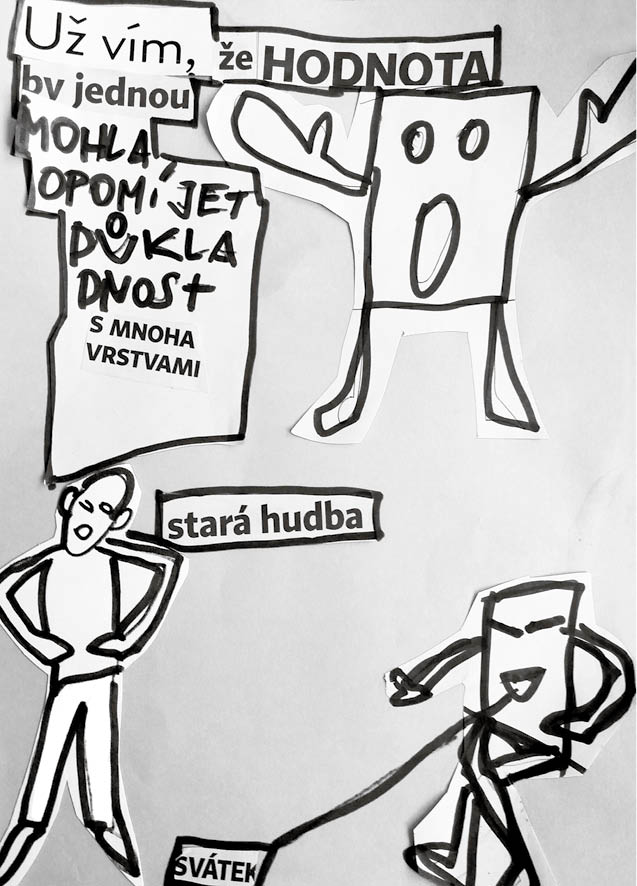 Už vím,
že HODNOTA
by jednou
MOHLA
OPOMÍJET
DŮKLA
DNOST
S MNOHA
VRSTVAMI
stará hudba
SVÁTEK